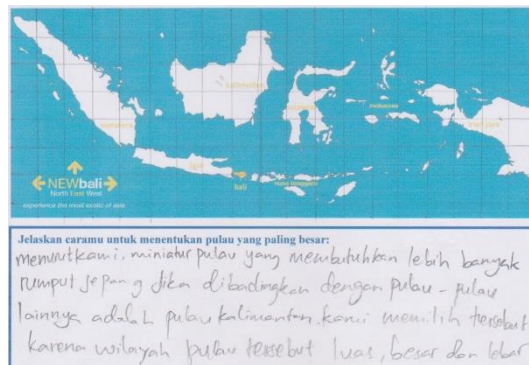 kalimantan
NEWbali
North East West
experience the most exotic of asia
bali
Jelaskan caramu untuk menentukan pulau yang paling besar:
menurut kami, miniatur pulau yang membutuhkan lebih banyak
rumput jepang jika dibadingkan dengan pulau - pulau
lainnya adalah pulau kalimantan. kami memilih tersebut
karena wilayah pulau tersebut luas, besar dan lebar